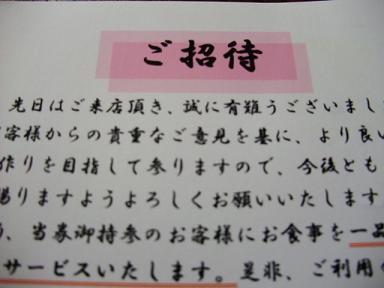 ご招待
先日はご来店頂き、誠に有難うございまし
客様からの貴重なご意見を基に、より良い
作りを目指して参りますので、今後とも
賜りますようよろしくお願いいたします
、当券御持参のお客様にお食事を一品
サービスいたします。是非、ご利用